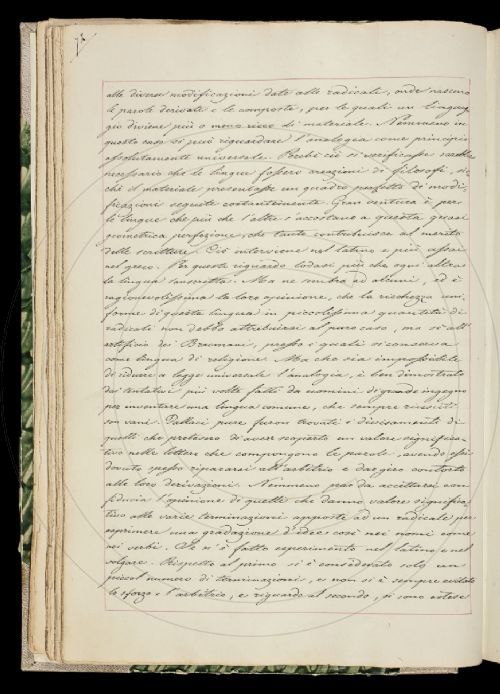 alle diverse modificazioni date alle radicali, onde nascono
le parole derivate e le composte, per le quali un linguag-
gio diviene più o meno ricco di materiale. Nemmeno in
questo caso si può riguardare l'analogia come principio
assolutamente universale. Perchè ciò si verificasse sarebbe
necessario che le lingue fossero creazioni di filosofi, sic-
chè il materiale presentasse un quadro perfetto di modi-
ficazioni seguite costantemente. Gran ventura è per
le lingue che più che l'altre s'accostano a questa quasi
geometrica perfezione, che tanto contribuisce al merito
delle scritture. Ciò interviene nel latino e più assai
nel greco. Per questo riguardo lodasi più che ogni altra
la lingua sanscritta. Ma ne sembra ad alcuni, ed è
ragionevolissima la loro opinione, che la ricchezza uni-
forme di questa lingua in piccolissima quantità di
radicali non debba attribuirsi al puro caso, ma sì all'
artificio dei Bramani, presso i quali si conserva
come lingua di religione. Ma che sia impossibile
di ridurre a legge universale l'analogia, è ben dimostrato
dai tentativi più volte fatti da uomini di grande ingegno
per inventare una lingua comune, che sempre riusciti
son vani. Fallaci pure furon trovati i divisamenti di
quelli che pretesero di aver scoperto un valore significa-
tivo nelle lettere che compongono le parole, avendo essi
dovuto spesso ripararsi all'arbitrio e dar giro contorto
alle loro derivazioni. Nemmeno poi da accettarsi con
fiducia l'opinione di quelli che danno valore significa-
tivo alle varie terminazioni apposte ad un radicale per
esprimere una gradazione d'idee così nei nomi come
nei verbi. Se n'è fatto esperimento nel latino e nel
volgare. Rispetto al primo si è considerato solo un
piccol numero di terminazioni, e non si è sempre evitato
lo sforzo e l'arbitrio, e riguardo al secondo, si sono estese